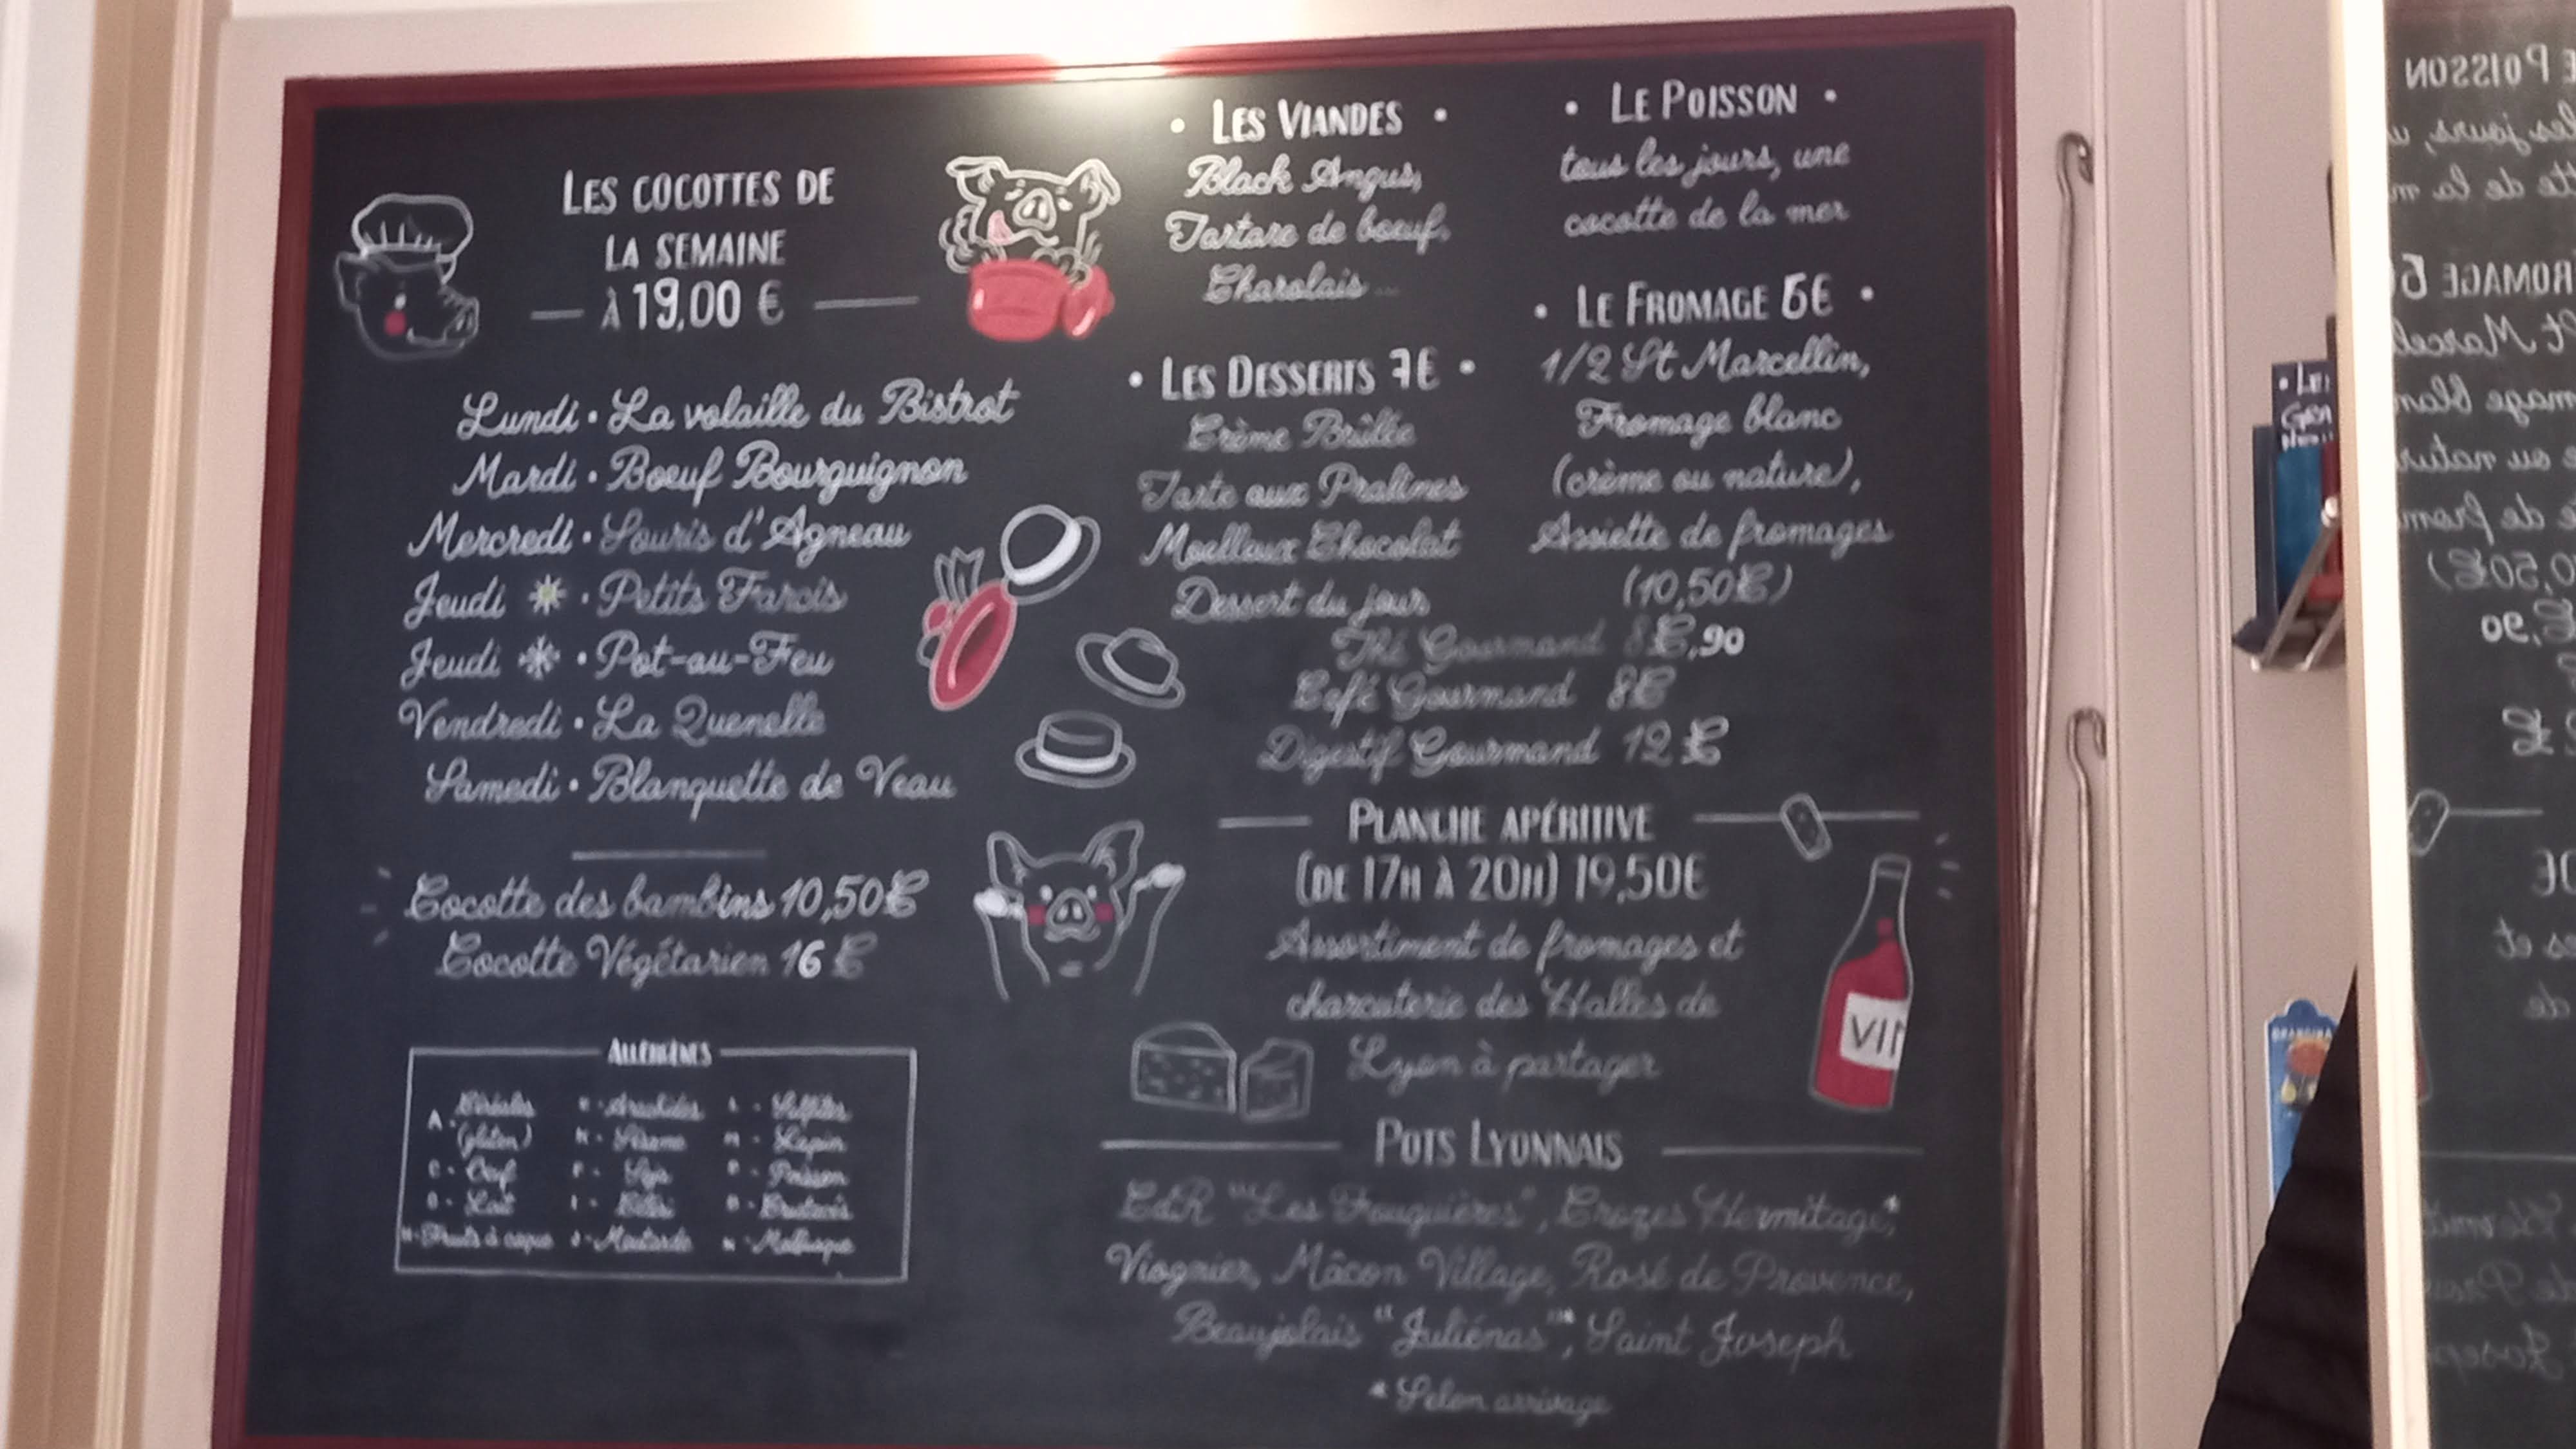 LES COCOTTES DE
LA SEMAINE
À 19,00 €
Lundi • La volaille du Bistrot
Mardi • Boeuf Bourguignon
Mercredi • Souris d'Agneau
Jeudi • Petits Farcis
Jeudi • Pot-au-Feu
Vendredi • La Quenelle
Samedi • Blanquette de Veau
Cocotte des bambins 10,50€
Cocotte Végétarien 16 €
ALLERGÈNES
A - Céréales
(gluten)
C - Oeuf
Lait
H - Fruits à coque
Arachides
Sésame
Soja
Céleri
J - Moutarde
Sulfites
Lupin
Poisson
Crustacés
Mollusque
• LES VIANDES •
Black Angus,
Tartare de boeuf,
Charolais...
• LES DESSERTS 7€ •
Crème Brûlée
Tarte aux Pralines
Moelleux Chocolat
Dessert du jour
• LE POISSON •
tous les jours, une
cocotte de la mer
• LE FROMAGE 5€ •
1/2 St Marcellin,
Fromage blanc
(crème ou nature),
Assiette de fromages
(10,50€)
Thé Gourmand 8€,90
Café Gourmand 8€
Digestif Gourmand 12 €
PLANCHE APÉRITIVE
(DE 17H À 20H) 19,50€
Assortiment de fromages et
charcuterie des Halles de
Lyon à partager
VIN
POTS LYONNAIS
CdR "Les Fouquières", Crozes Hermitage*,
Viognier, Mâcon Village, Rosé de Provence,
Beaujolais "Juliénas", Saint Joseph
* Selon arrivage